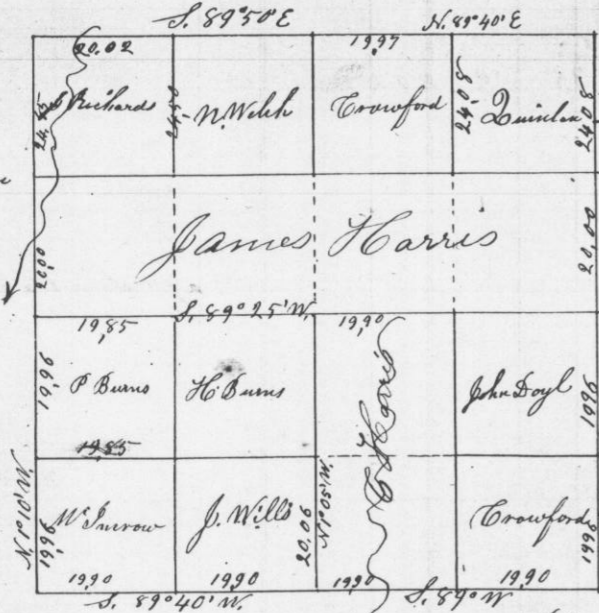 S. 89°50'E N. 89°40'E
20.02 19,97
24,45 Richards 24,50 N. Welch Crowford 24,08 Quinlan 24,08
James Harris
20,00 20,00
S. 89°25'W.
19,85 19,90
19,96 P Burns H Burns C Harris John Doyl 1996
19.85
N 1° 0' W N 1° 05' W
1996 J. Wills 20.06 Crowford 1996
19,90 19,90 1990 19,90
S. 89°40'W. S. 89° W